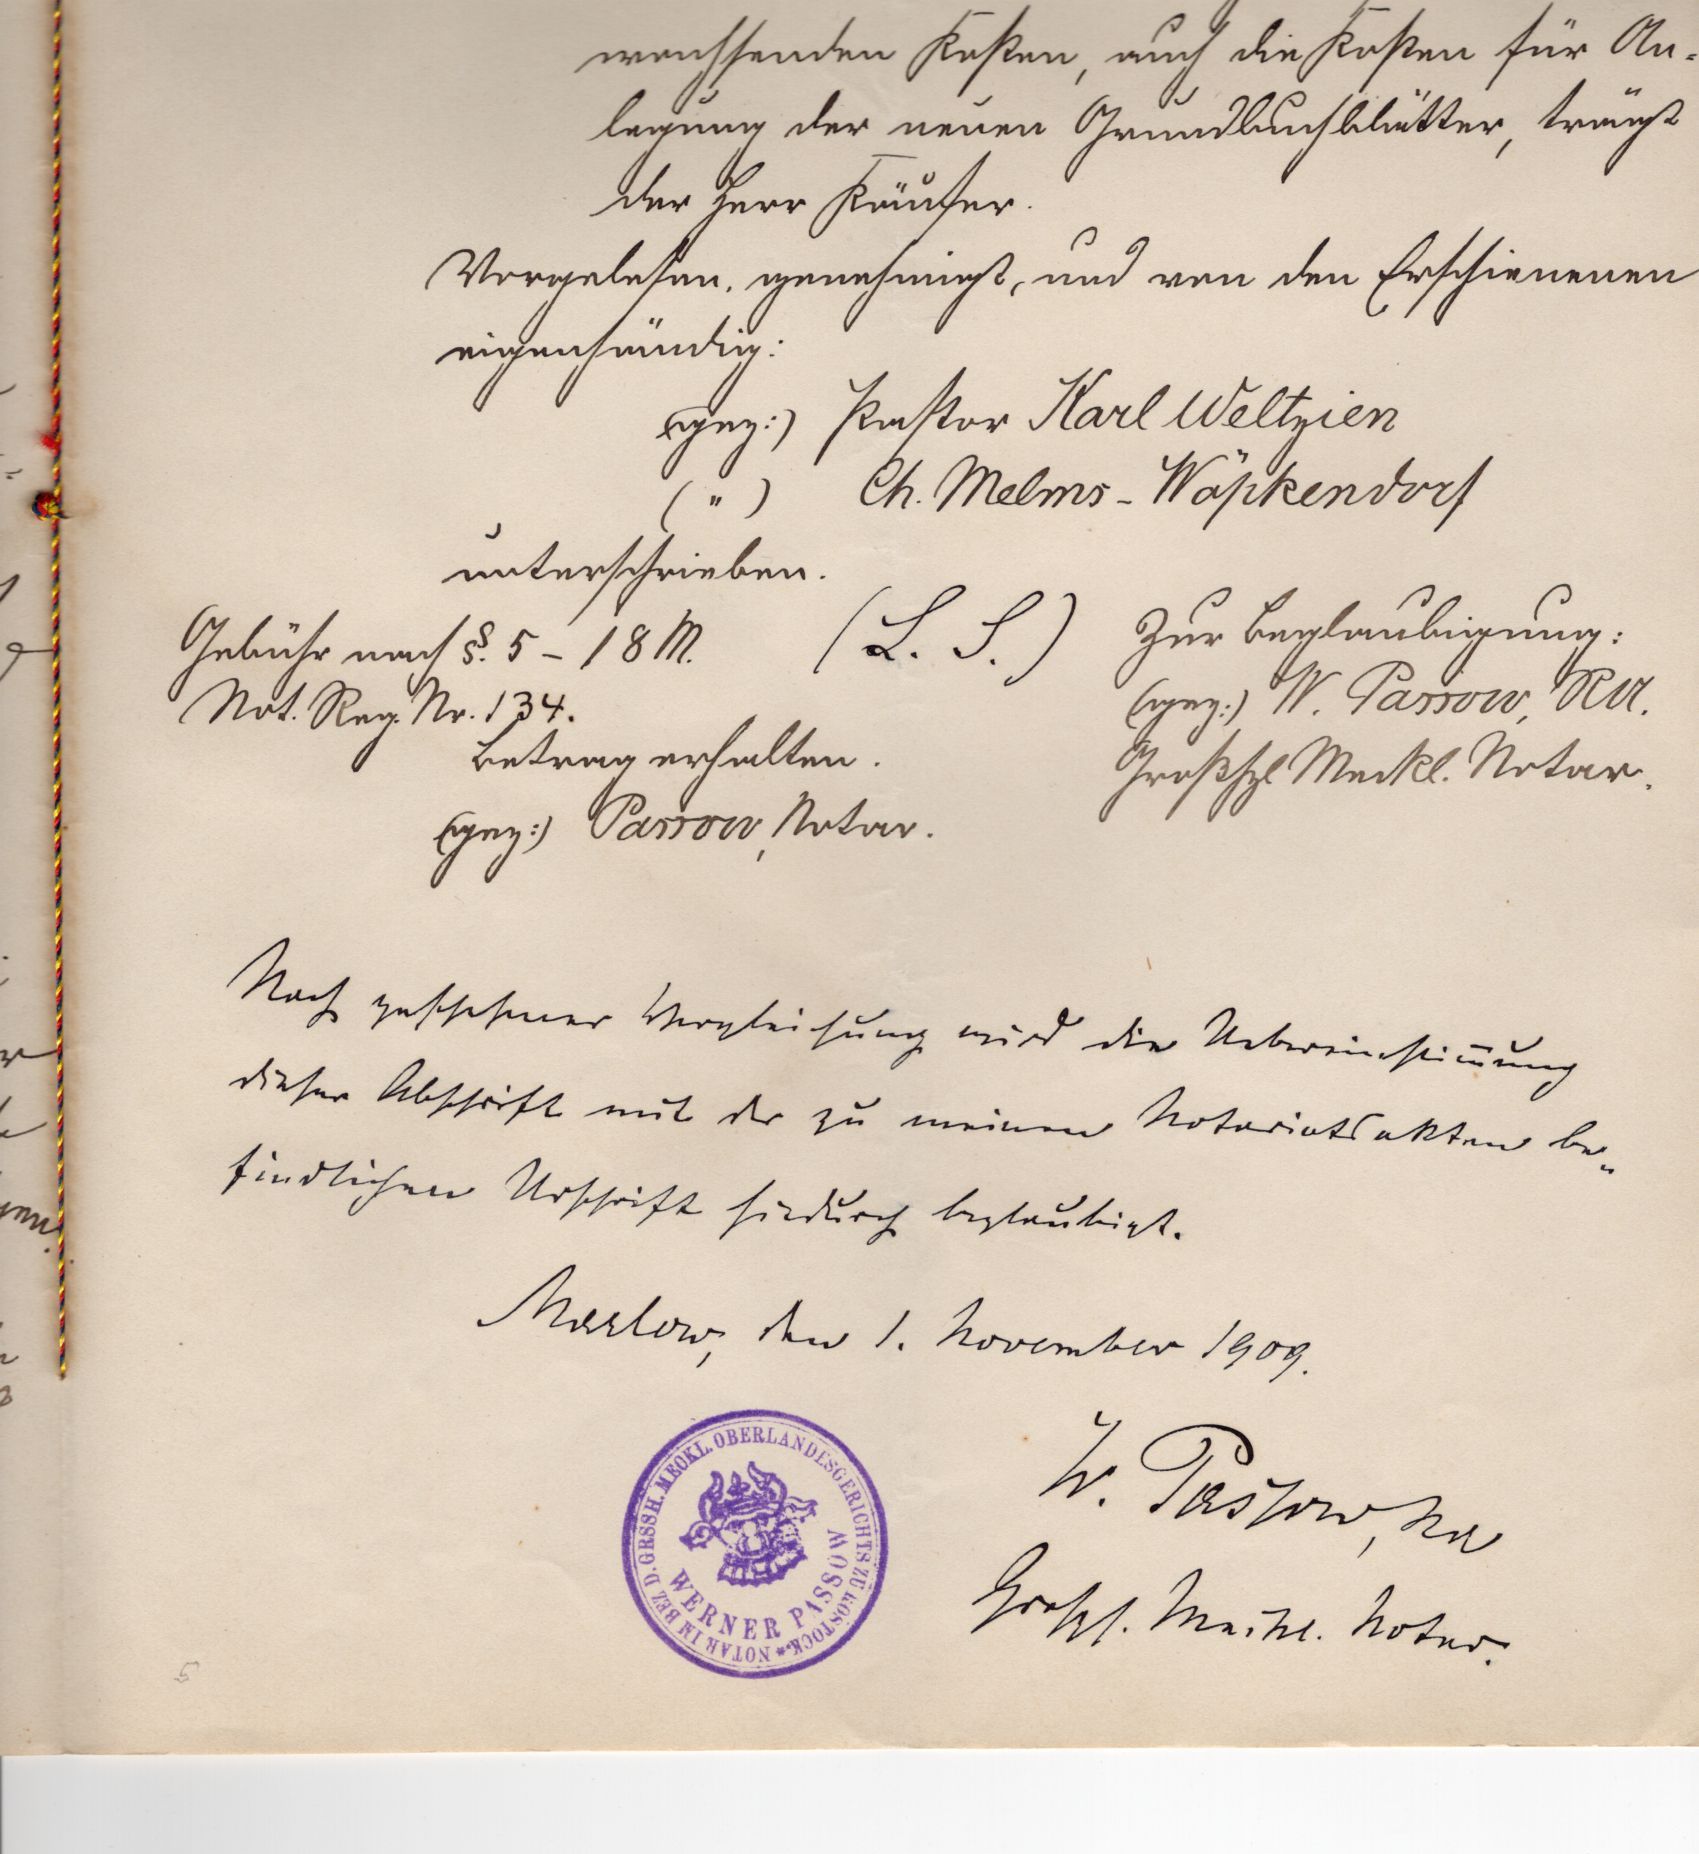 wachsenden Kosten, auch die Kosten für An-
legung der neuen Grundbuchblätter, trägt
der Herr Käufer.
Vorgelesen, genehmigt, und von den Erschienenen
eigenhändig:
(gez:) Pastor Karl Weltzien
( " ) Ch. Melms - Wöpkendorf
unterschrieben.
Gebühr nach §. 5 - 18 M.
Not. Reg. Nr. 134.
Betrag erhalten.
(gez:) Passow, Notar.
(L. S.)
Zur Beglaubigung:
(gez:) W. Passow, RA.
Großhzl Meckl. Notar.
Nach geschehener Vergleichung wird die Uebereinstim̅ung
dieser Abschrift mit der zu meinen Notariatsakten be-
findlichen Urschrift hierdurch beglaubigt.
Marlow, den 1. November 1909.
W. Passow, RA
Großhl. Meckl. Notar.
NOTAR IM BEZ. D. GRSSH. MECKL. OBERLANDESGERICHTS ZU ROSTOCK. *
WERNER PASSOW
5